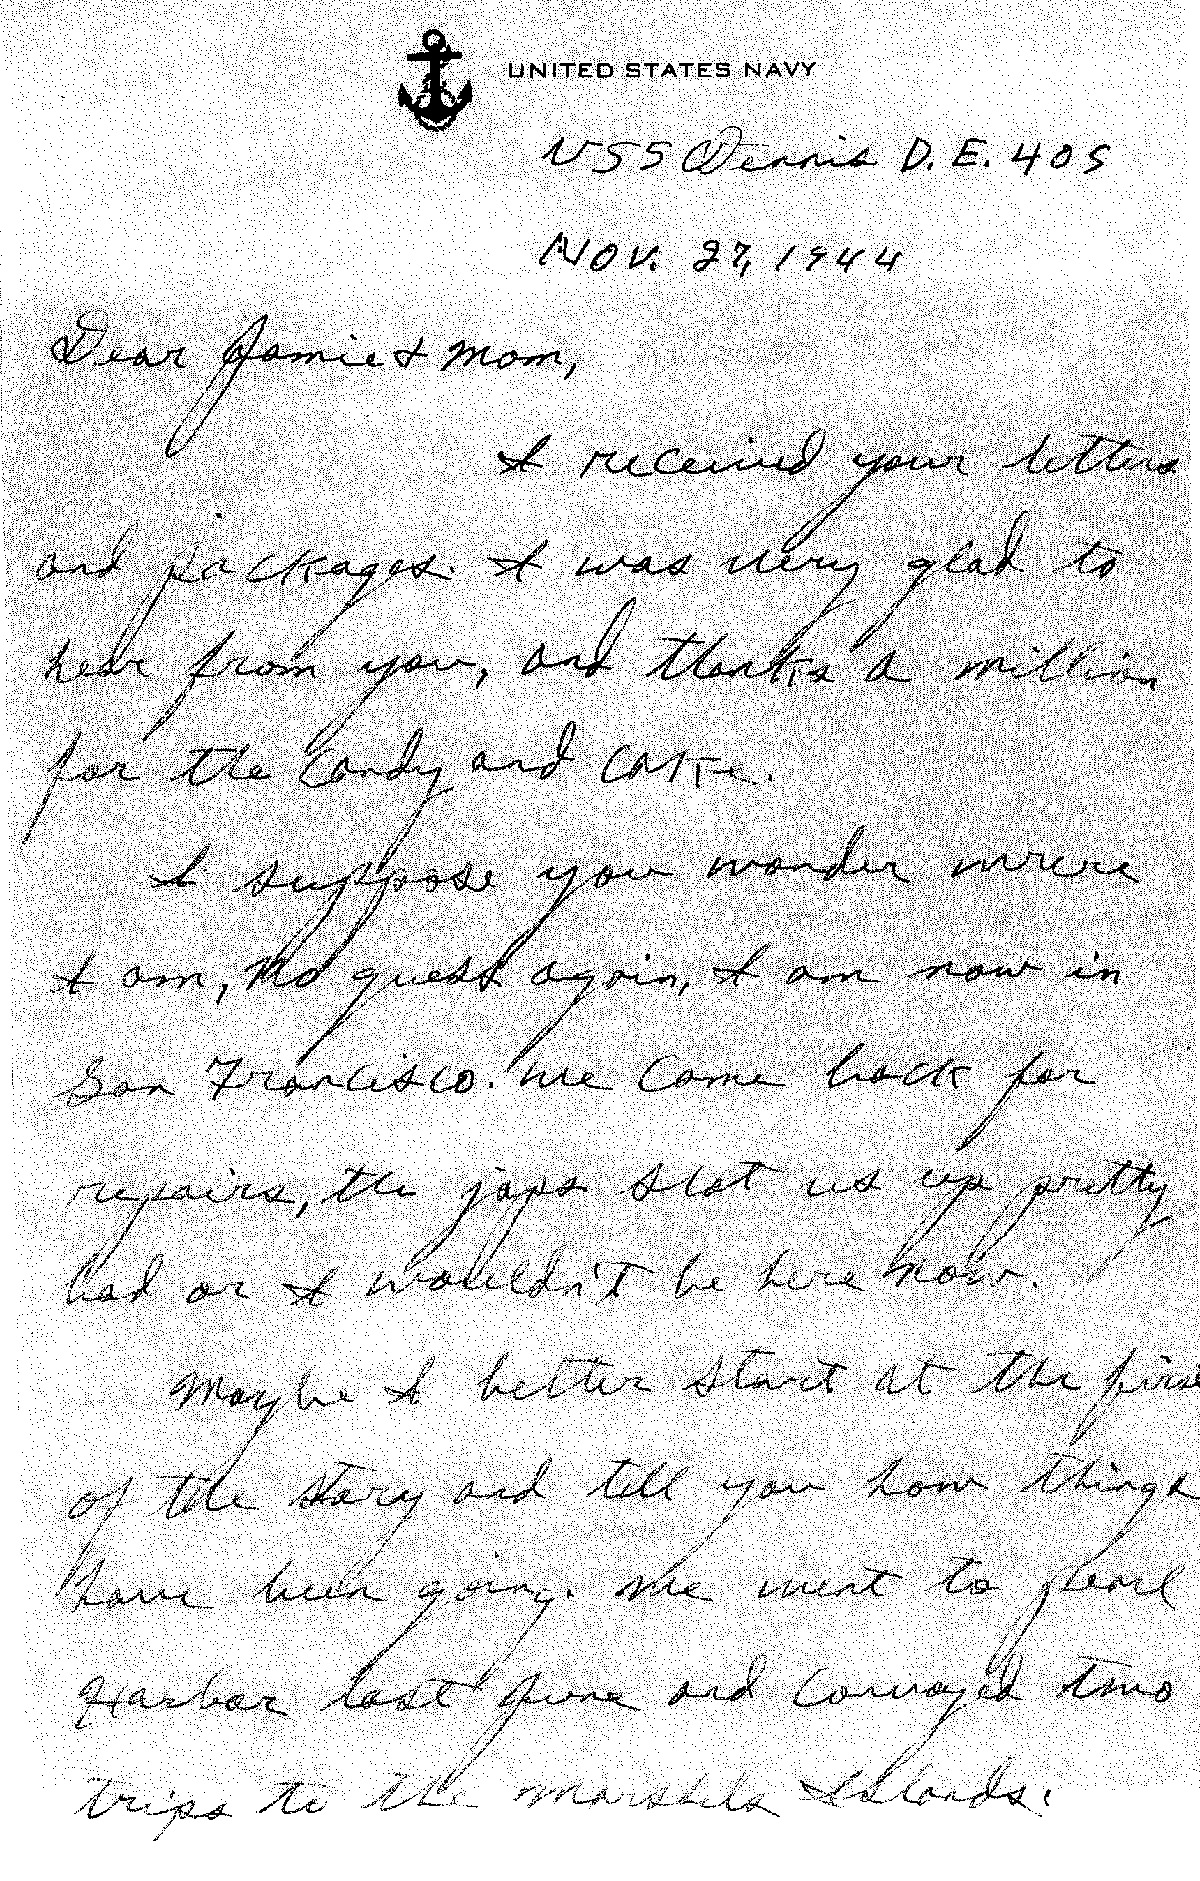 UNITED STATES NAVY
USS Dennis D.E. 405
Nov. 27, 1944
Dear Jamie & Mom,
I received your letters
and packages. I was very glad to
hear from you, and thanks a million
for the candy and cake.
I suppose you wonder where
I am, No guess again, I am now in
San Francisco. We came back for
repairs, the japs shot us up pretty
bad or I wouldn't be here now.
Maybe I better start at the first
of the story and tell you how things
have been going. We went to pearl
Harbor last June and convoyed two
trips to the Marshils Islands.